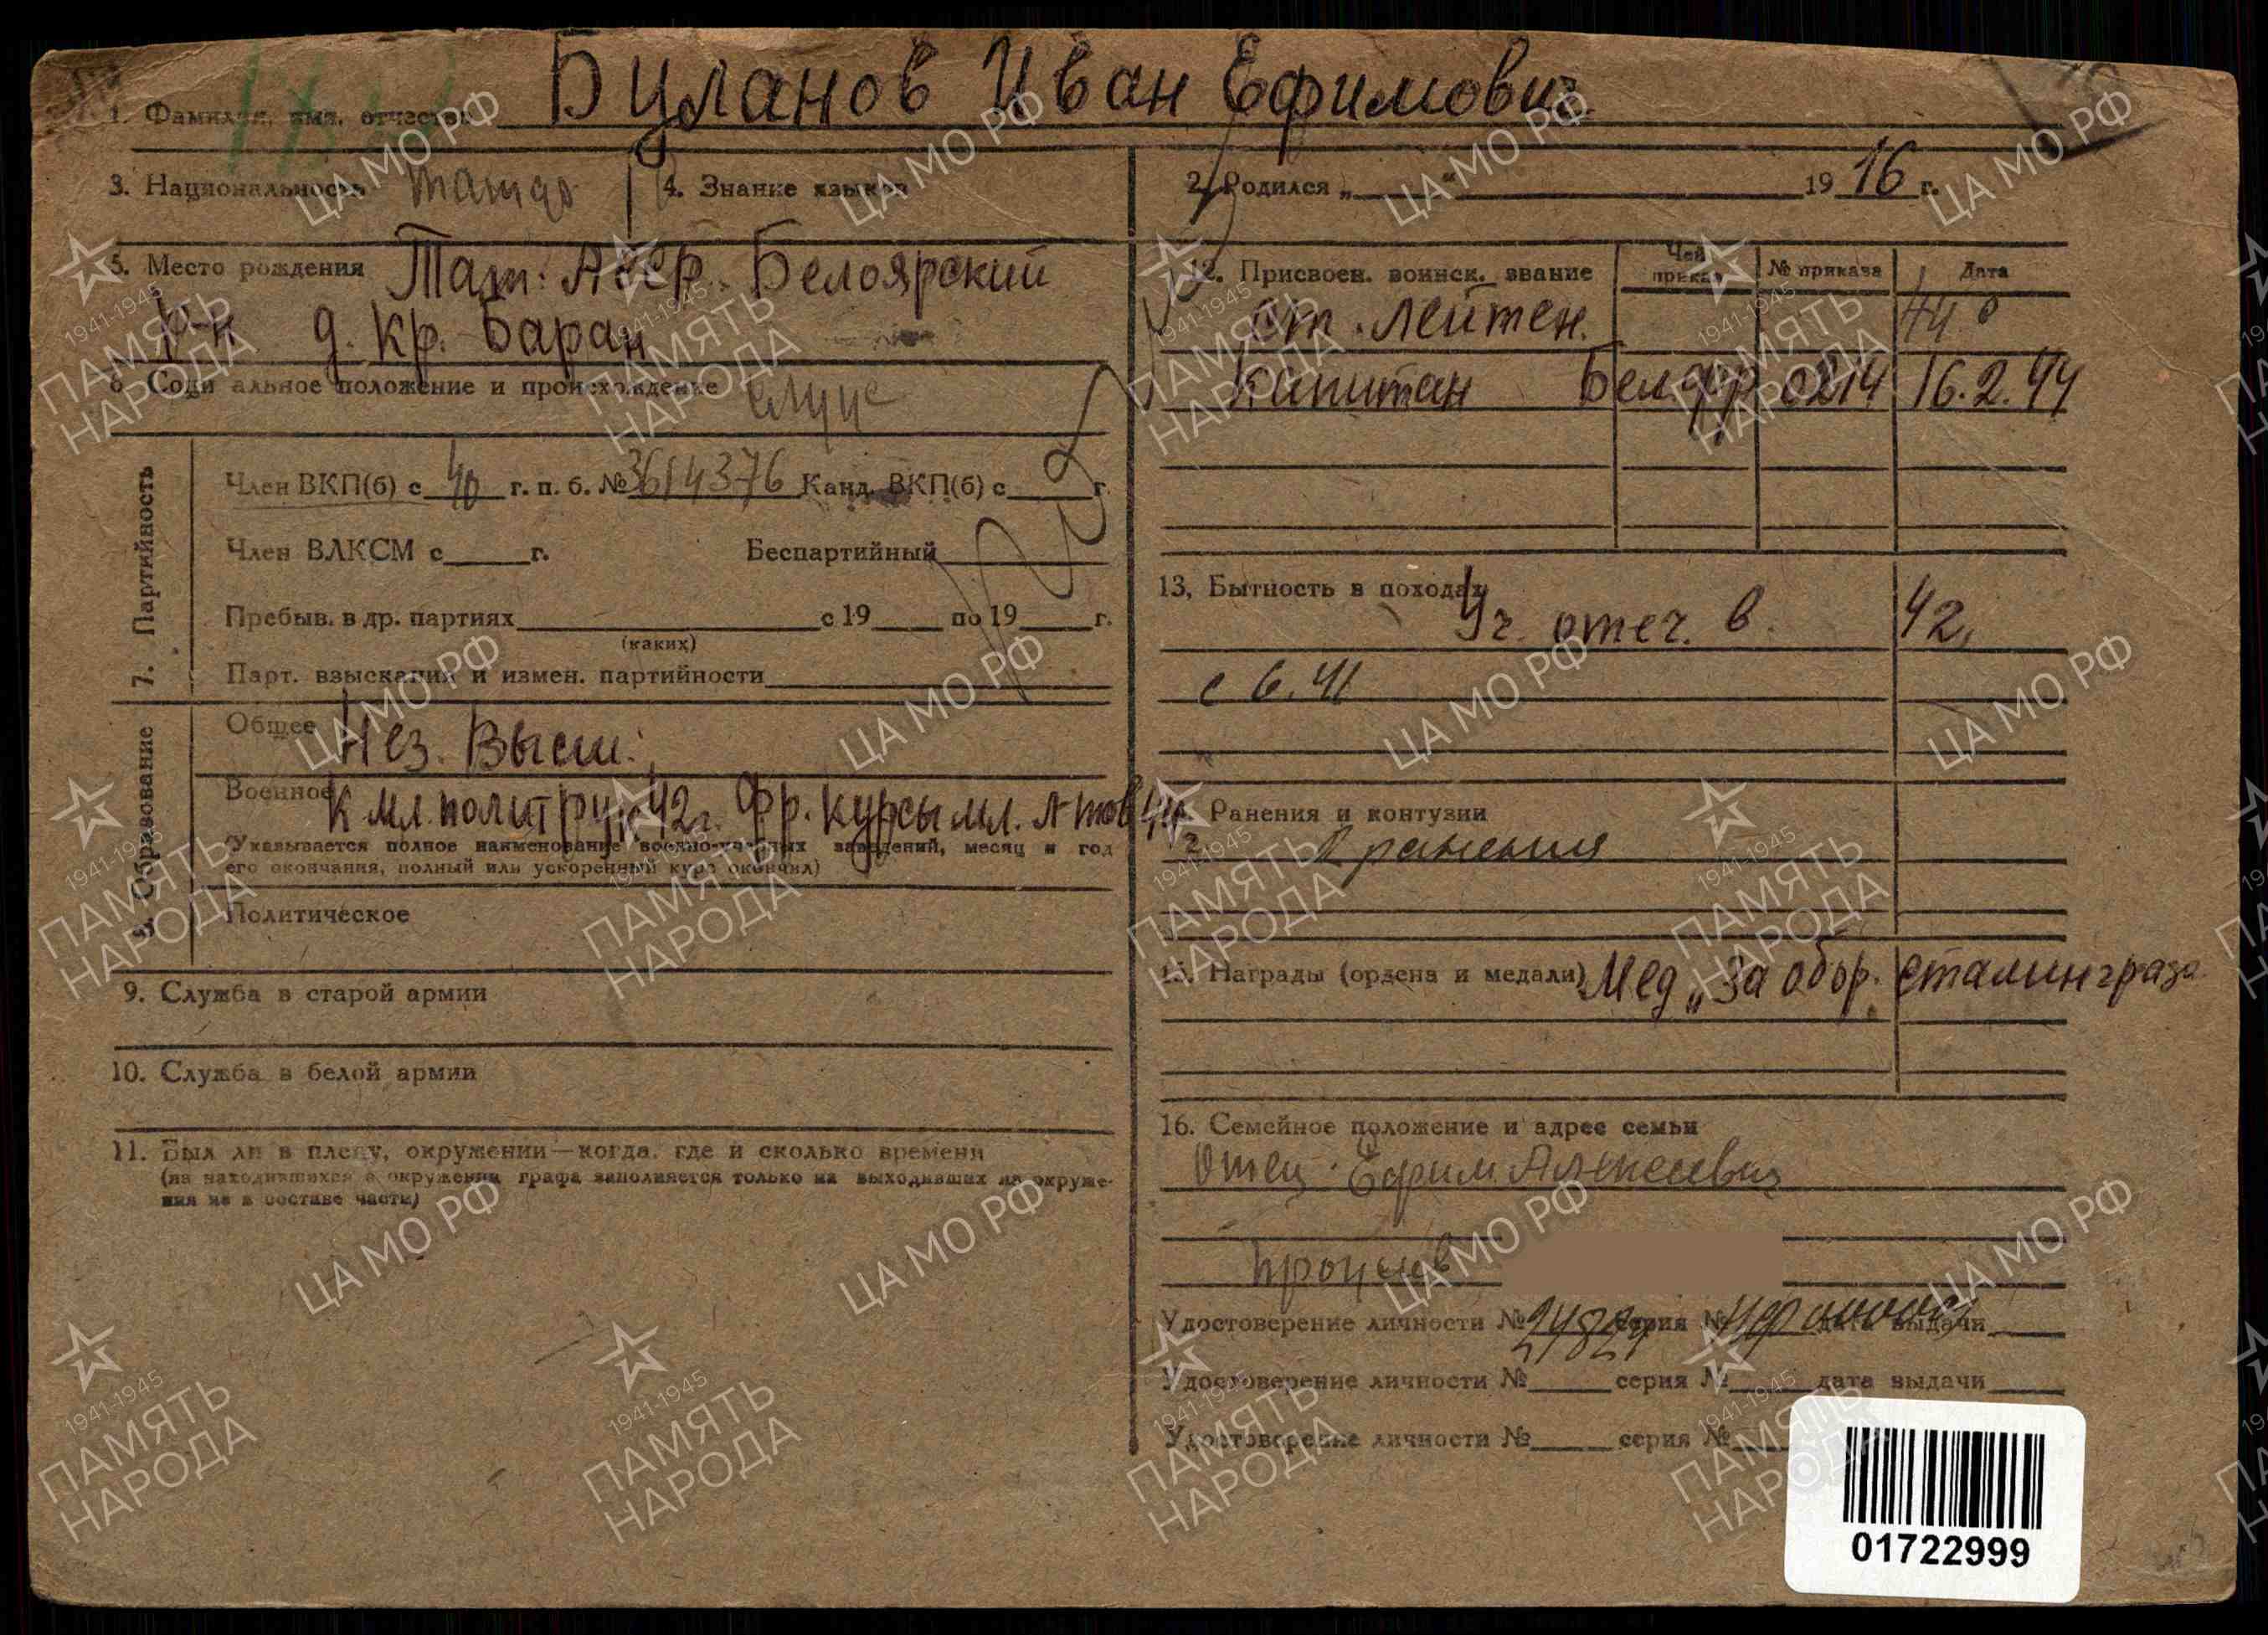 1. Фамилия, имя, отчество Буланов Иван Ефимович
3. Национальность
4. Знание языков
2. Родился „ “ 1916 г.
5. Место рождения Тат. АССР. Белоярский
р-н д. Кр. Баран
6. Социальное положение и происхождение служ
7. Партийность
Член ВКП(б) с 40 г. п. б. № 3614376 Канд. ВКП(б) с г.
Член ВЛКСМ с г. Беспартийный
Пребыв. в др. партиях с 19 по 19 г.
(каких)
Парт. взыскания и измен. партийности
8. Образование
Общее Нез. Высш.
Военное К мл. политрук 42г. Фр. курсы мл. л-тов 44
г
(Указывается полное наименование военно-учебных заведений, месяц и год
его окончания, полный или ускоренный курс окончил)
Политическое
9. Служба в старой армии
10. Служба в белой армии
11. Был ли в плену, окружении—когда, где и сколько времени
(на находившихся в окружении графа заполняется только на выходивших из окруже-
ния не в составе части)
12. Присвоен. воинск. звание Чей приказ № приказа Дата
ст. лейтен. 44
Капитан Бел фр 0214 16.2.44
13. Бытность в походах
Уч. отеч. в. 42,
с 6.41
14. Ранения и контузии
ранения
15. Награды (ордена и медали) Мед „За обор. Сталинграда
16. Семейное положение и адрес семьи
Отец. Ефим Алексеевич
Удостоверение личности № серия № дата выдачи
Удостоверение личности № серия № дата выдачи
Удостоверение личности № серия №
01722999
1941-1945
ПАМЯТЬ
НАРОДА
ЦА МО РФ